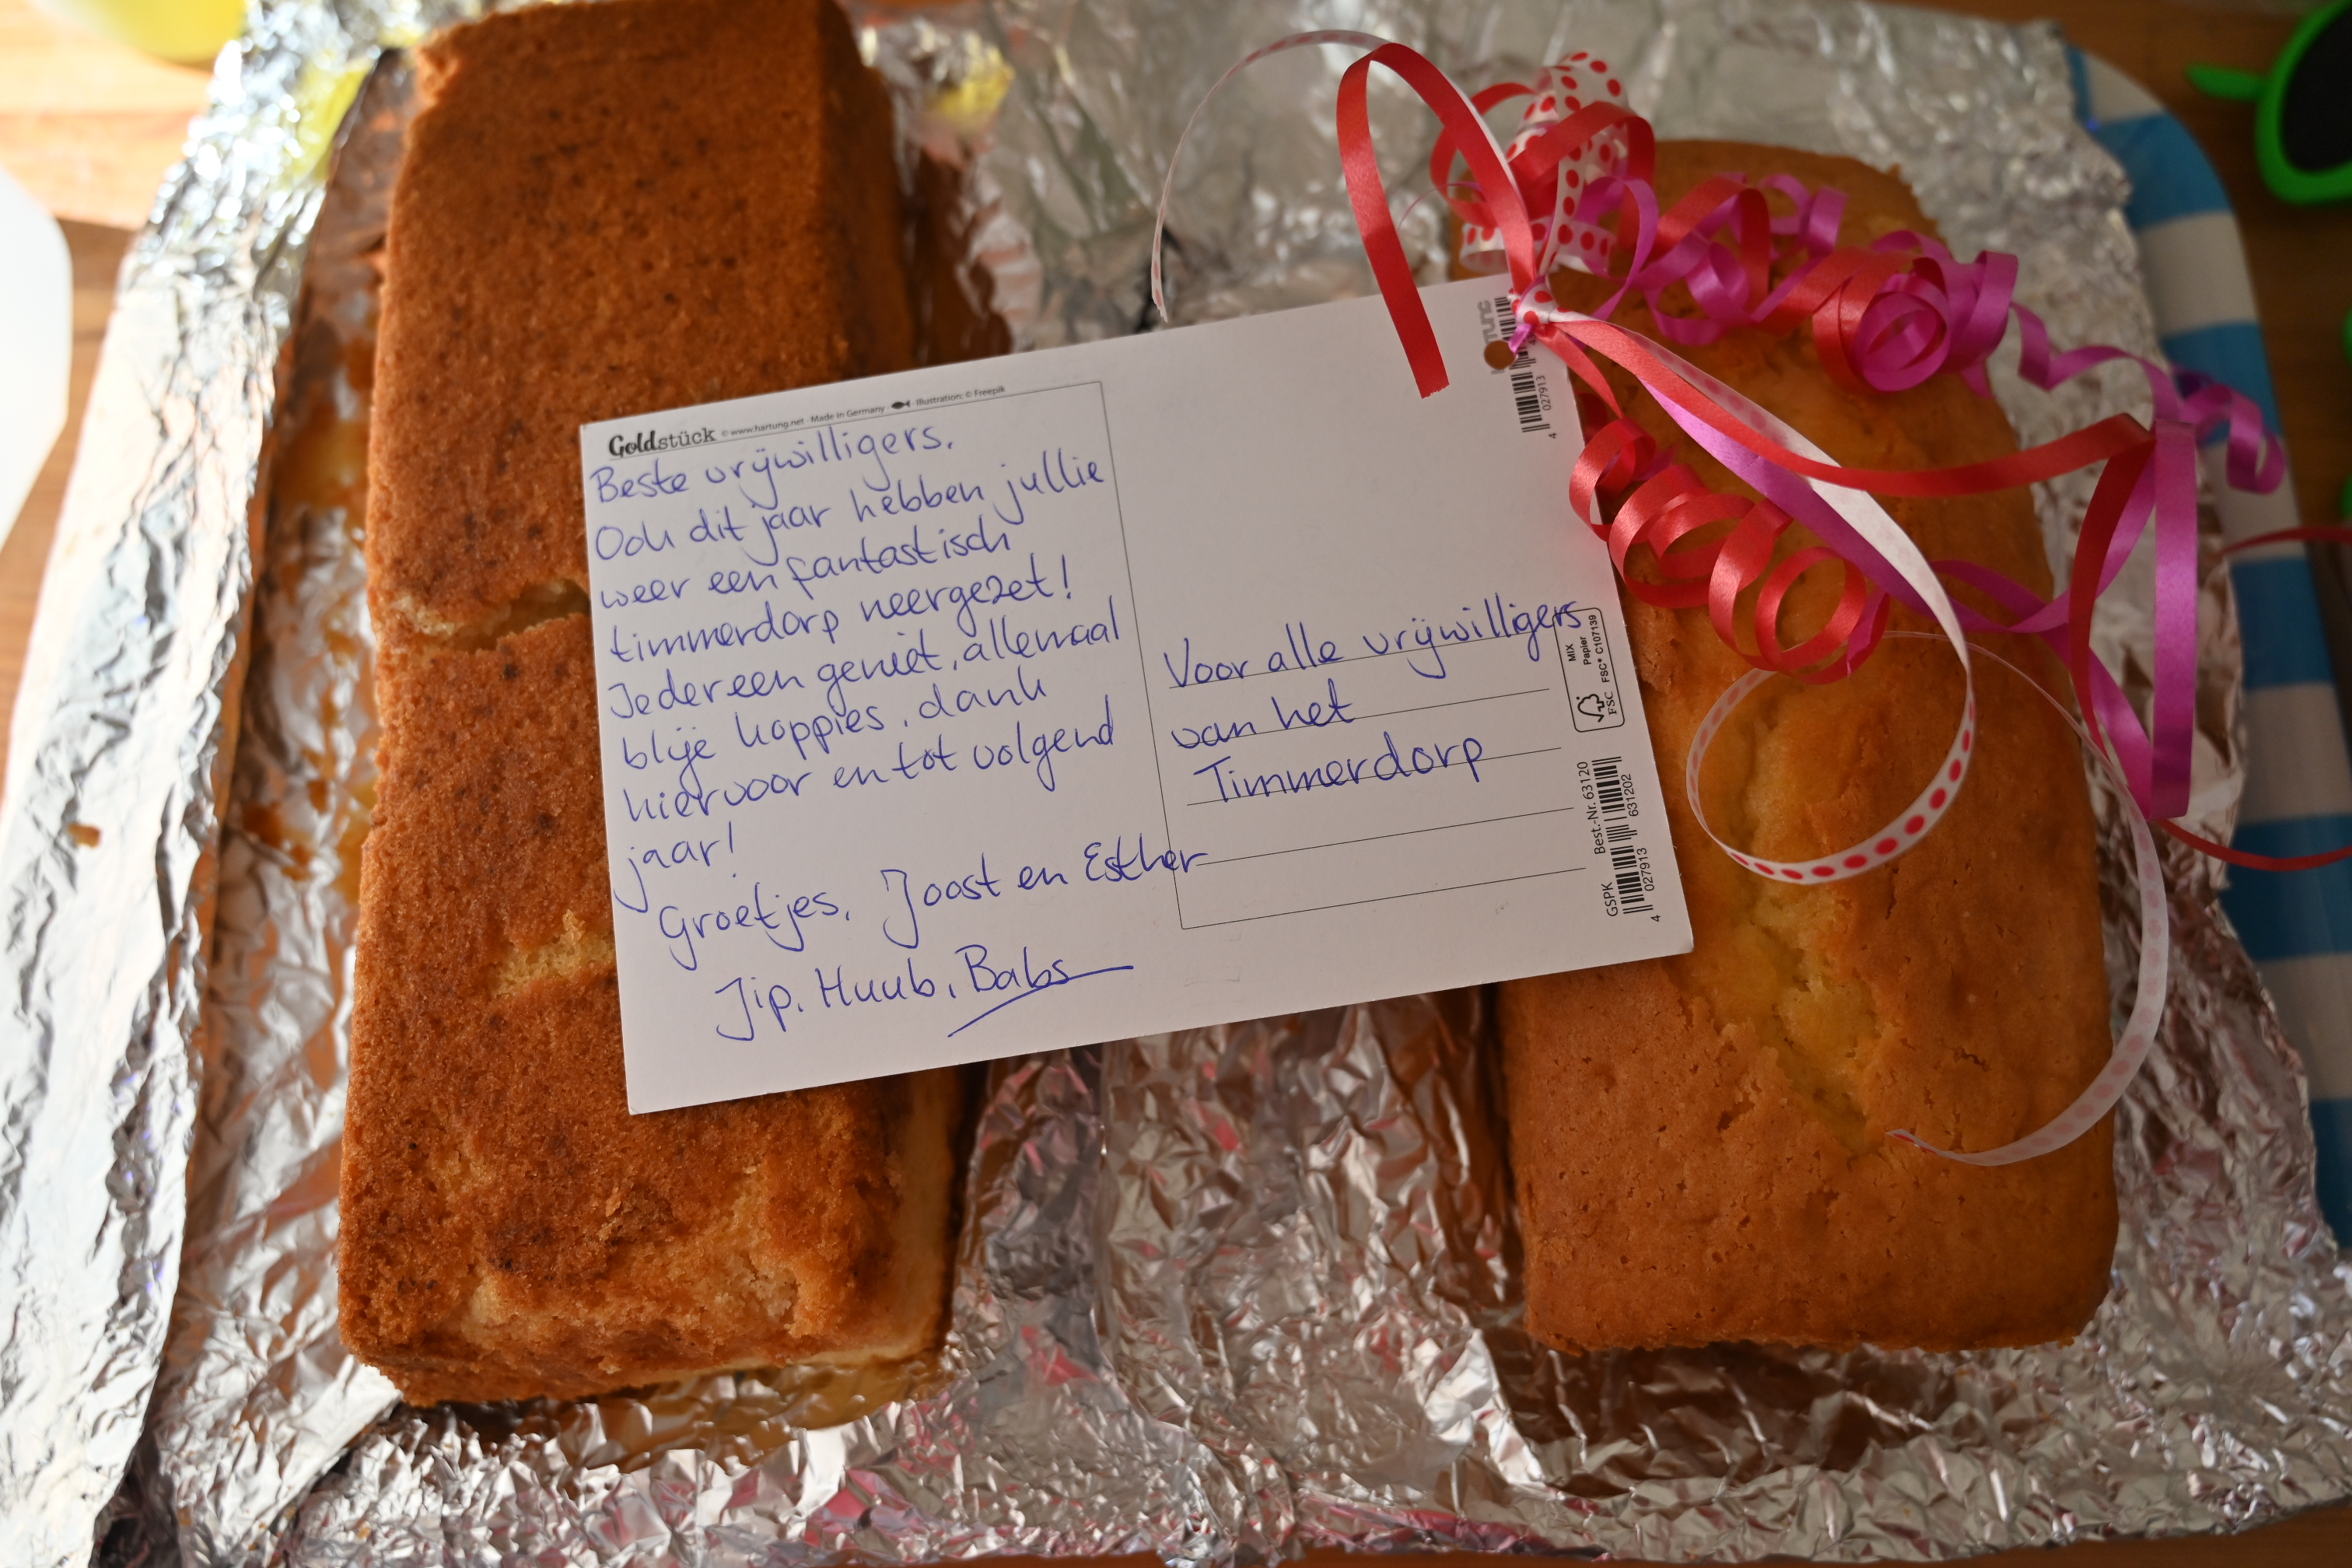 Goldstück © www.hartung.net · Made in Germany · Illustration: © Freepik
Beste vrijwilligers,
Ook dit jaar hebben jullie
weer een fantastisch
timmerdorp neergezet!
Iedereen geniet, allemaal
blije koppies, dank
hiervoor en tot volgend
jaar!
Groetjes, Joost en Esther
Jip, Huub, Babs
Voor alle vrijwilligers
van het
Timmerdorp
4 027913
MIX
Papier
FSC® C107139
FSC
GSPK Best.-Nr. 63120
4 027913 631202